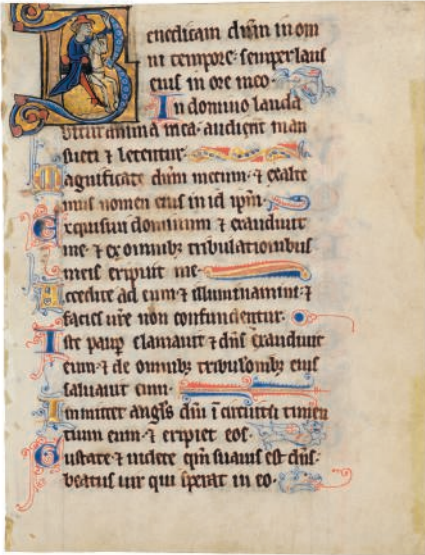 Benedicam dñm in om
ni tempore· semper laus
eius in ore meo·
In domino lauda
bitur anima mea· audient man
sueti ⁊ letentur·
Magnificate dñm mecum· ⁊ exalte
mus nomen eius in id ipm̄·
Exquisiui dominum ⁊ exaudiuit
me· ⁊ ex omnibꝫ tribulationibus
meis eripuit me·
Accedite ad eum ⁊ illuminamini· ⁊
facies ur̄e non confundentur·
Iste paup̱ clamauit ⁊ dñs exaudiuit
eum· ⁊ de omnibꝫ tribul'onibꝫ eius
saluauit eum·
Immittet angl's dñi ī circuitu timen
tium eum· ⁊ eripiet eos·
Gustate ⁊ uidete qm̄ suauis est dñs·
beatus uir qui sperat in eo·